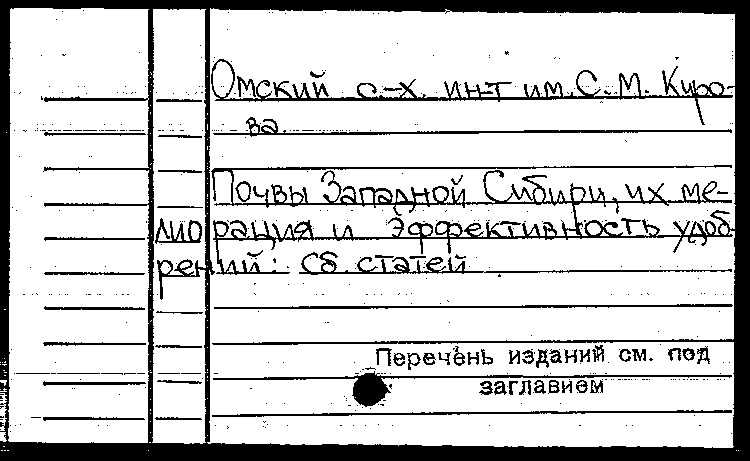 Омский с.-х. ин-т им. С. М. Киро-
ва.
Почвы Западной Сибири, их ме-
лиорация и эффективность удоб-
рений: Сб. статей
Перечень изданий см. под
заглавием